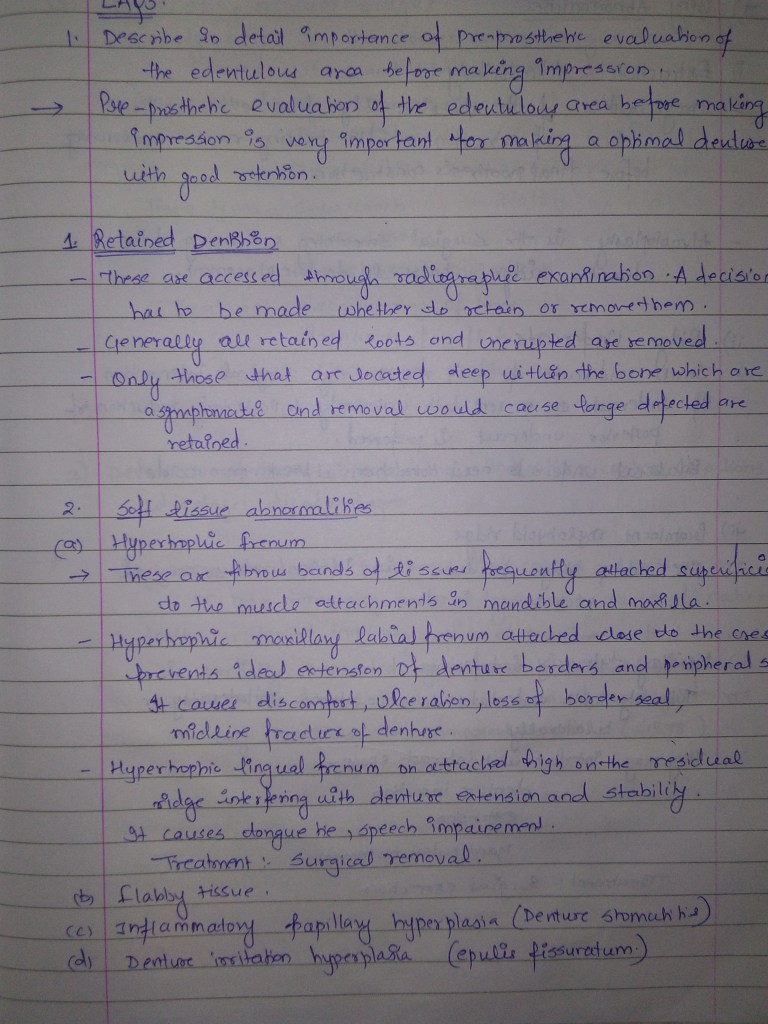 LAQs.
1. Describe in detail importance of pre-prosthetic evaluation of
the edentulous area before making impression.
→ Pre-prosthetic evaluation of the edentulous area before making
impression is very important for making a optimal denture
with good retention.
1. Retained Dentition
- These are accessed through radiographic examination. A decision
has to be made whether to retain or remove them.
- Generally all retained roots and unerupted are removed.
- Only those that are located deep within the bone which are
asymptomatic and removal would cause large defected are
retained.
2. Soft tissue abnormalities
(a) Hypertrophic frenum
→ These are fibrous bands of tissues frequently attached
to the muscle attachments in mandible and maxilla.
- Hypertrophic maxillary labial frenum attached close to the cres
prevents ideal extension of denture borders and peripheral s
It causes discomfort, ulceration, loss of border seal,
midline fracture of denture.
- Hypertrophic lingual frenum on attached high on the residual
ridge interfering with denture extension and stability.
It causes tongue tie, speech impairement.
Treatment :- Surgical removal.
(b) flabby tissue.
(c) Inflammatory papillary hyperplasia (Denture stomatitis)
(d) Denture irritation hyperplasia (epulis fissuratum.)